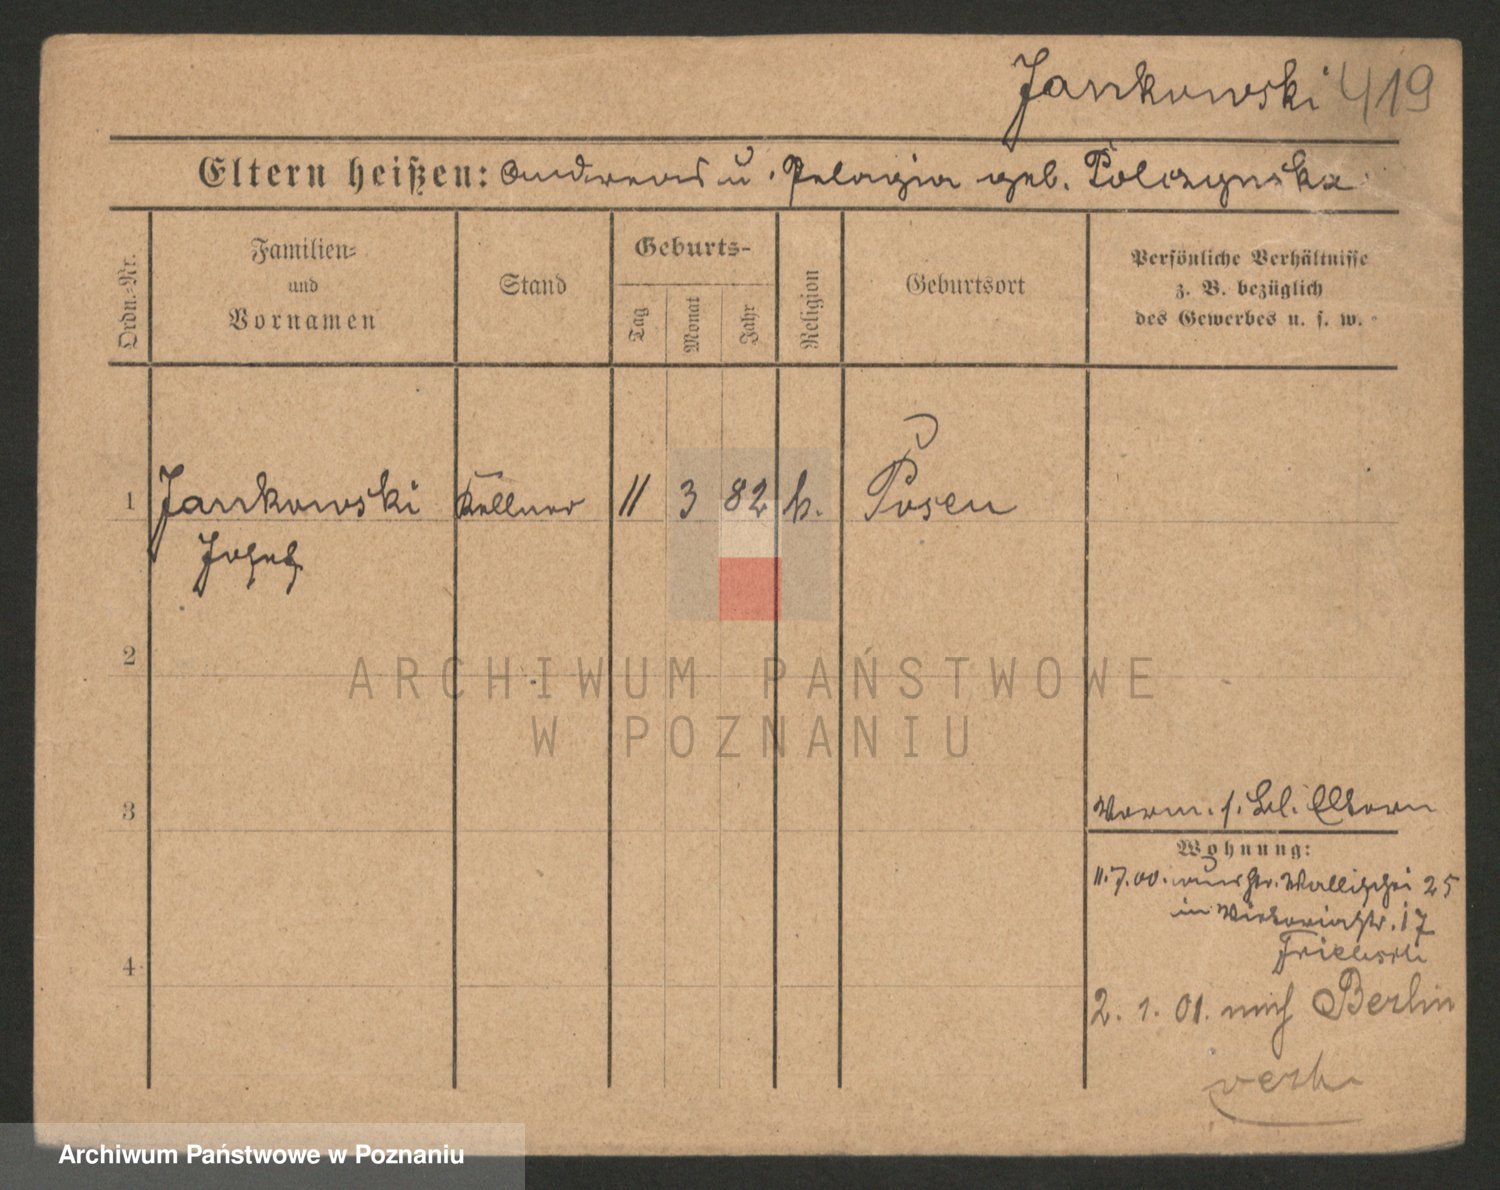 Jankowski 419
Eltern heißen: Andreas u. Pelagia geb. Polczynska
Ordn.-Nr.
Familien-
und
Vornamen
Stand
Geburts-
Tag
Monat
Jahr
Religion
Geburtsort
Persönliche Verhältnisse
z. B. bezüglich
des Gewerbes u. s. w.
1 Jankowski Kellner 11 3 82 k. Posen
Josef
2
ARCHIWUM PAŃSTWOWE
W POZNANIU
3
Vorm. s. Bl. Eltern
Wohnung:
11.7.00. Wallischei 25
in Viktoriastr. 17
4
2. 1. 01. nach Berlin
verh
Archiwum Państwowe w Poznaniu